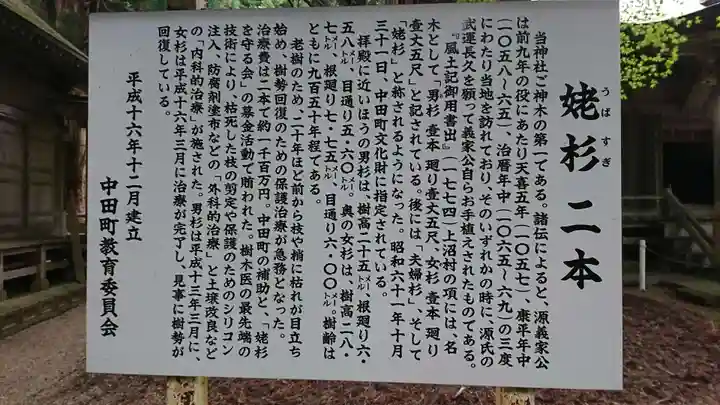 姥杉 二本
うば すぎ
当神社ご神木の第一である。諸伝によると、源義家公
は前九年の役にあたり天喜五年(一〇五七)、康平年中
(一〇五八~六五)、治暦年中(一〇六五~六九)の三度
にわたり当地を訪れており、そのいずれかの時に、源氏の
武運長久を願って義家公自らお手植えされたものである。
『風土記御用書出』(一七七四)上沼村の項には、名
木として、男杉 壹本 廻り壹大五尺、女杉 壹本 廻り
壹大五尺」と記されている。後には「夫婦杉」、そして
「姥杉」と称されるようになった。昭和六十一年十月
三十一日、中田町文化財に指定されている。
拝殿に近いほうの男杉は、樹高二十五㍍、根廻り六・
五八㍍、目通り五・六〇㍍。奥の女杉は、樹高二八・
七㍍、根廻り七・七五㍍、目通り六・〇〇㍍。樹齢は
ともに九百五十年程である。
老樹のため、二十年ほど前から枝や梢に枯れが目立ち
始め、樹勢回復のための保護治療が急務となった。
治療費は二本で約一千百万円。中田町の補助と、「姥杉
を守る会」の募金活動で賄われた。樹木医の最先端の
技術により、枯死した枝の剪定や保護のためのシリコン
注入、防腐剤塗布などの「外科的治療」と土壌改良など
の「内科的治療」が施された。男杉は平成十三年三月に、
女杉は平成十六年三月に治療が完了し、見事に樹勢が
回復している。
平成十六年十二月建立
中田町教育委員会